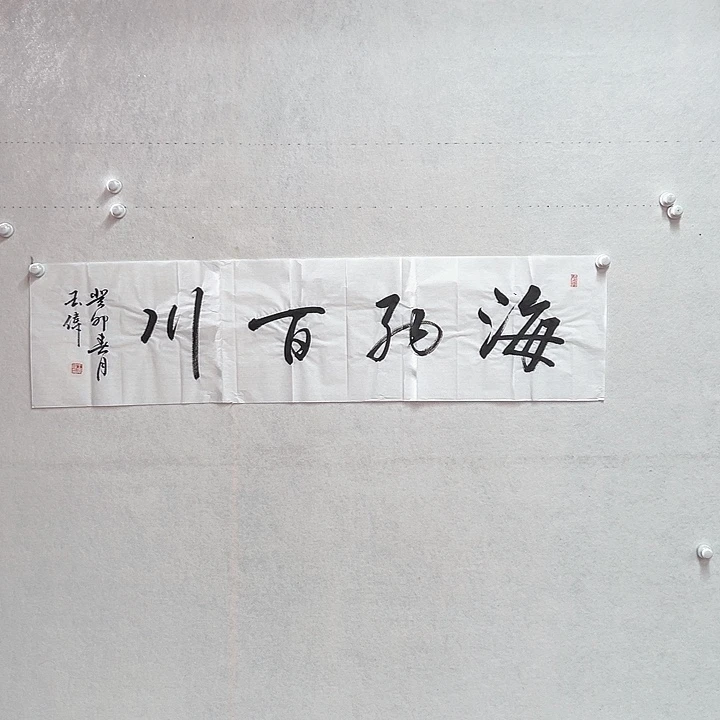 海纳百川
癸卯春月
玉偉